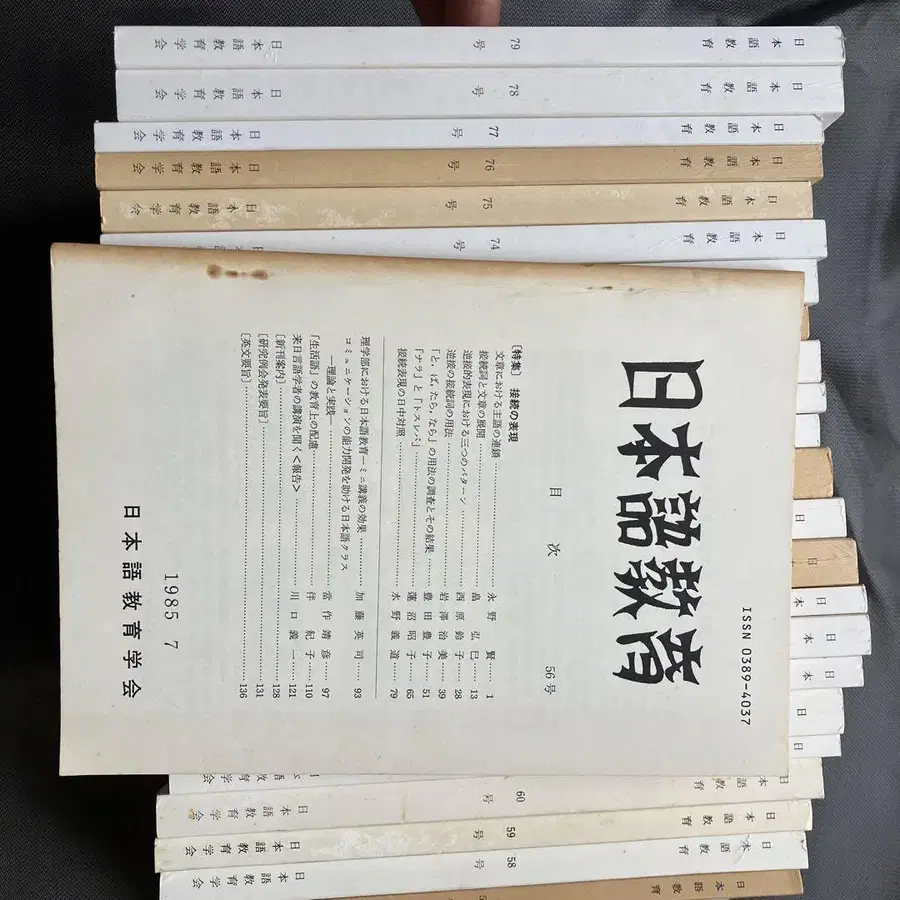 日本語教育 79号 日本語教育学会
日本語教育 78号 日本語教育学会
日本語教育 77号 日本語教育学会
日本語教育 76号 日本語教育学会
日本語教育 75号 日本語教育学会
日本語教育 74号
ISSN 0389-4037
日本語教育
目次 56号
〔特集〕 接続の表現
文章における主語の連鎖……永野 賢… 1
接続詞と文章の展開……畠 弘巳… 13
逆接的表現における三つのパターン……西原鈴子… 28
逆接の接続詞の用法……岩澤治美… 39
「と，ば，たら，なら」の用法の調査とその結果……豊田豊子… 51
「ナラ」と「トスレバ」……蓮沼昭子… 65
接続表現の日中対照……水野義道… 79
理学部における日本語教育―ミニ講義の効果……加藤英司… 93
コミュニケーションの能力開発を助ける日本語クラス
―理論と実践―……當作靖彦… 97
「生活語」の教育上の配慮……伴 紀子… 110
来日言語学者の講演を聞く＜報告＞……川口義一… 121
〔新刊案内〕…… 128
〔研究例会発表要旨〕…… 131
〔英文要旨〕…… 136
1985 7
日本語教育学会
日本語教育 60号 日本語教育学会
日本語教育 59号 日本語教育学会
日本語教育 58号 日本語教育学会
日本語教育